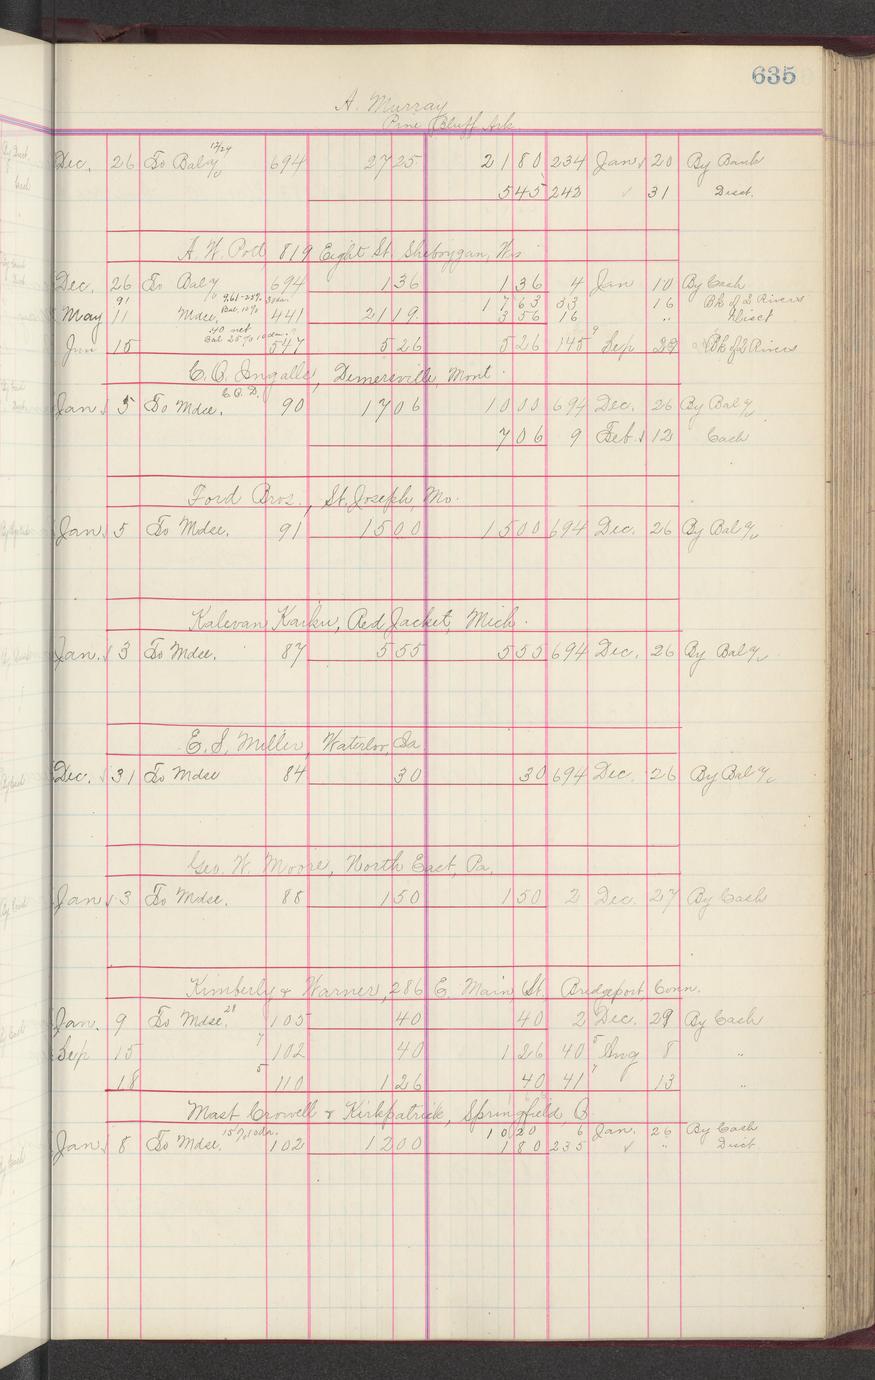 635
A. Murray
Pine Bluff Ark.
Dec. 26 To Bal 12/24 694 2725 2180 234 Jan 20 By Bank
545 242 31 Disct.
A. W. Pott, 819 Eight St. Sheboygan, Wis
Dec. 26 To Bal 694 136 136 4 Jan 10 By Cash
91 1763 33 16 Bk of 2 Rivers
May 11 Mdse, 441 2119 356 16 " Disct
40 net
Jun 15 547 526 526 145 9 Sep 29 Bk of 2 Rivers
C. C. Ingalls, Demersville, Mont.
Jan 5 To Mdse, C.O.D. 90 1706 1000 694 Dec. 26 By Bal
706 9 Feb. 12 Cash
Ford Bros., St. Joseph, Mo.
Jan. 5 To Mdse. 91 1500 1500 694 Dec. 26 By Bal
Kalevan Kaiku, Red Jacket, Mich.
Jan. 3 To Mdse. 87 555 555 694 Dec. 26 By Bal
E. S. Miller, Waterloo, Ia.
Dec. 31 To Mdse 84 30 30 694 Dec. 26 By Bal
Geo. W. Moore, North East, Pa.
Jan 3 To Mdse. 88 150 150 2 Dec. 27 By Cash
Kimberly & Warner, 286 E. Main St. Bridgeport, Conn.
Jan. 9 To Mdse. 28 105 40 40 2 Dec. 29 By Cash
Sep 15 7 102 40 126 40 5 Aug 8 "
18 5 110 126 40 41 7 13 "
Mast Crowell & Kirkpatrick, Springfield, O.
15% 10 da. 1020 6 Jan. 26 By Cash
Jan 8 To Mdse. 102 1200 180 235 " Disct